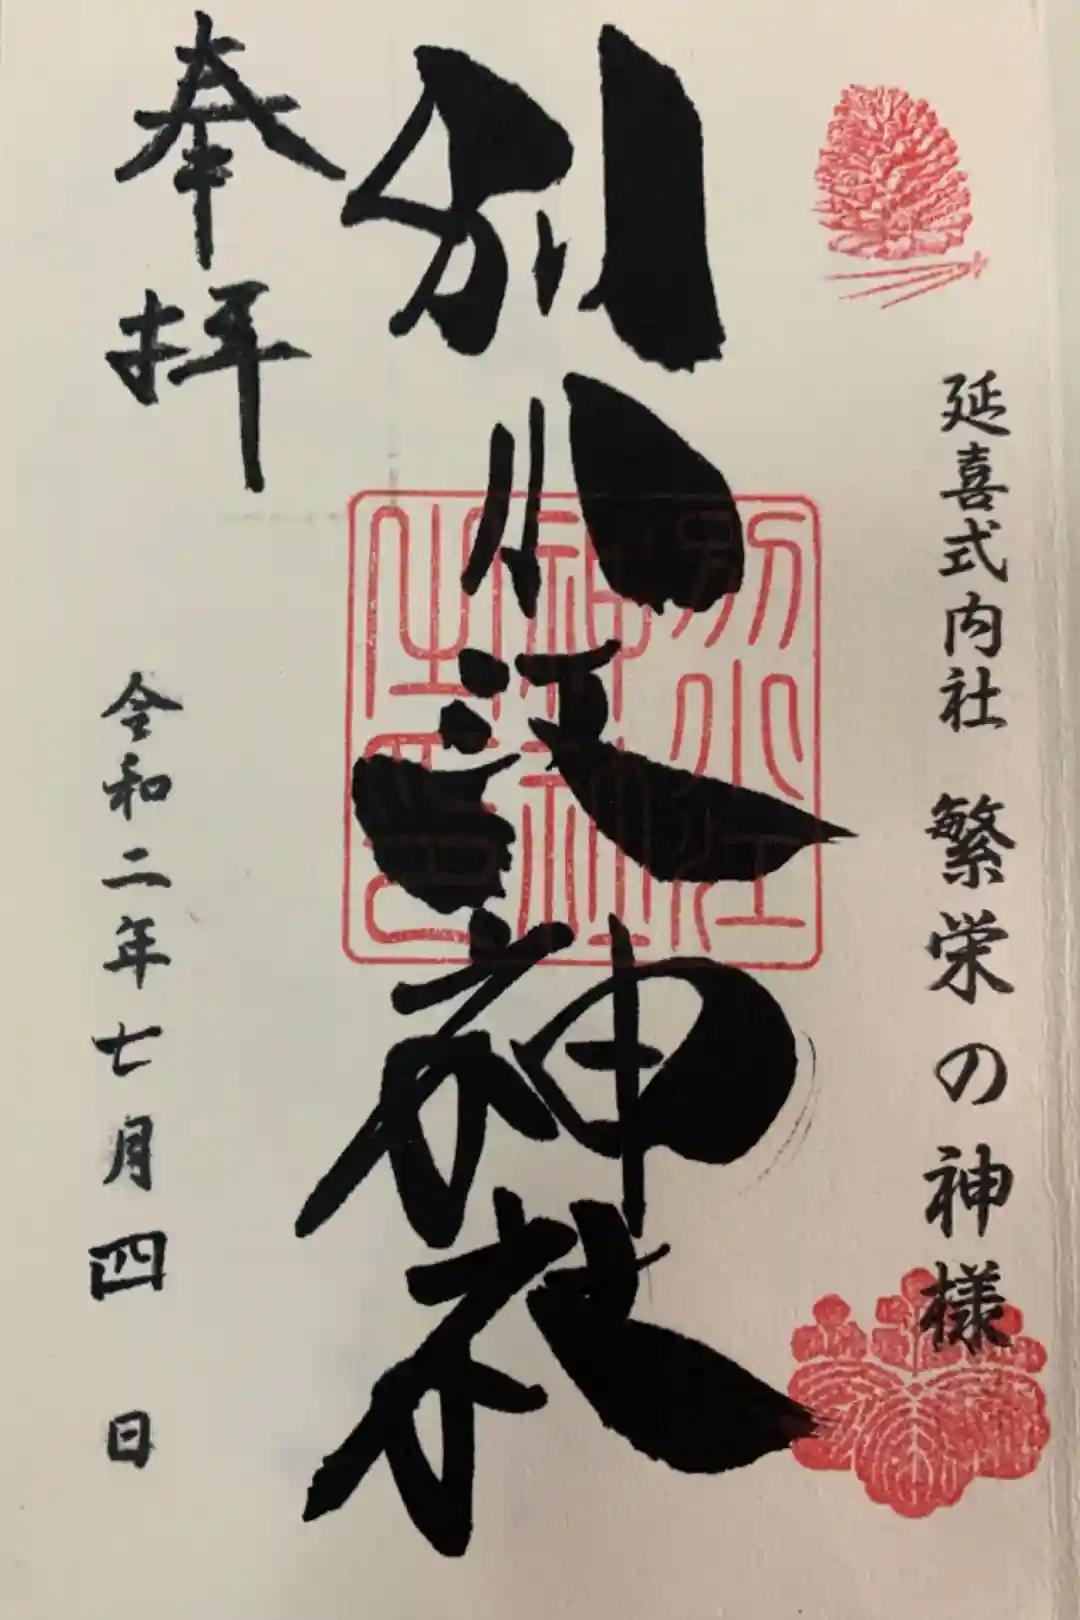 延喜式内社 繁栄の神様
別小江神社
別小江
神社
之印
奉拝
令和二年七月四日